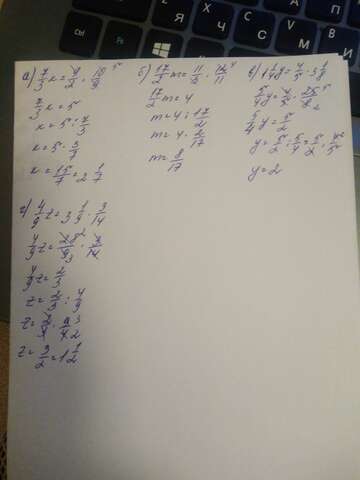 а) 7/3 x = 9/2 · 10/9 5
7/3 x = 5
x = 5 : 7/3
x = 5 · 3/7
x = 15/7 = 2 1/7
б) 17/2 m = 11/3 · 12/11 4
17/2 m = 4
m = 4 : 17/2
m = 4 · 2/17
m = 8/17
в) 1 1/4 y = 4/5 · 3 1/8
5/4 y = 4/5 · 25/8 5 2
5/4 y = 5/2
y = 5/2 : 5/4 = 5/2 · 4/5 2
y = 2
г) 4/9 z = 3 1/9 · 3/14
4/9 z = 28/9 · 3/14 2 3
4/9 z = 2/3
z = 2/3 : 4/9
z = 2/3 · 9/4 3 2
z = 3/2 = 1 1/2